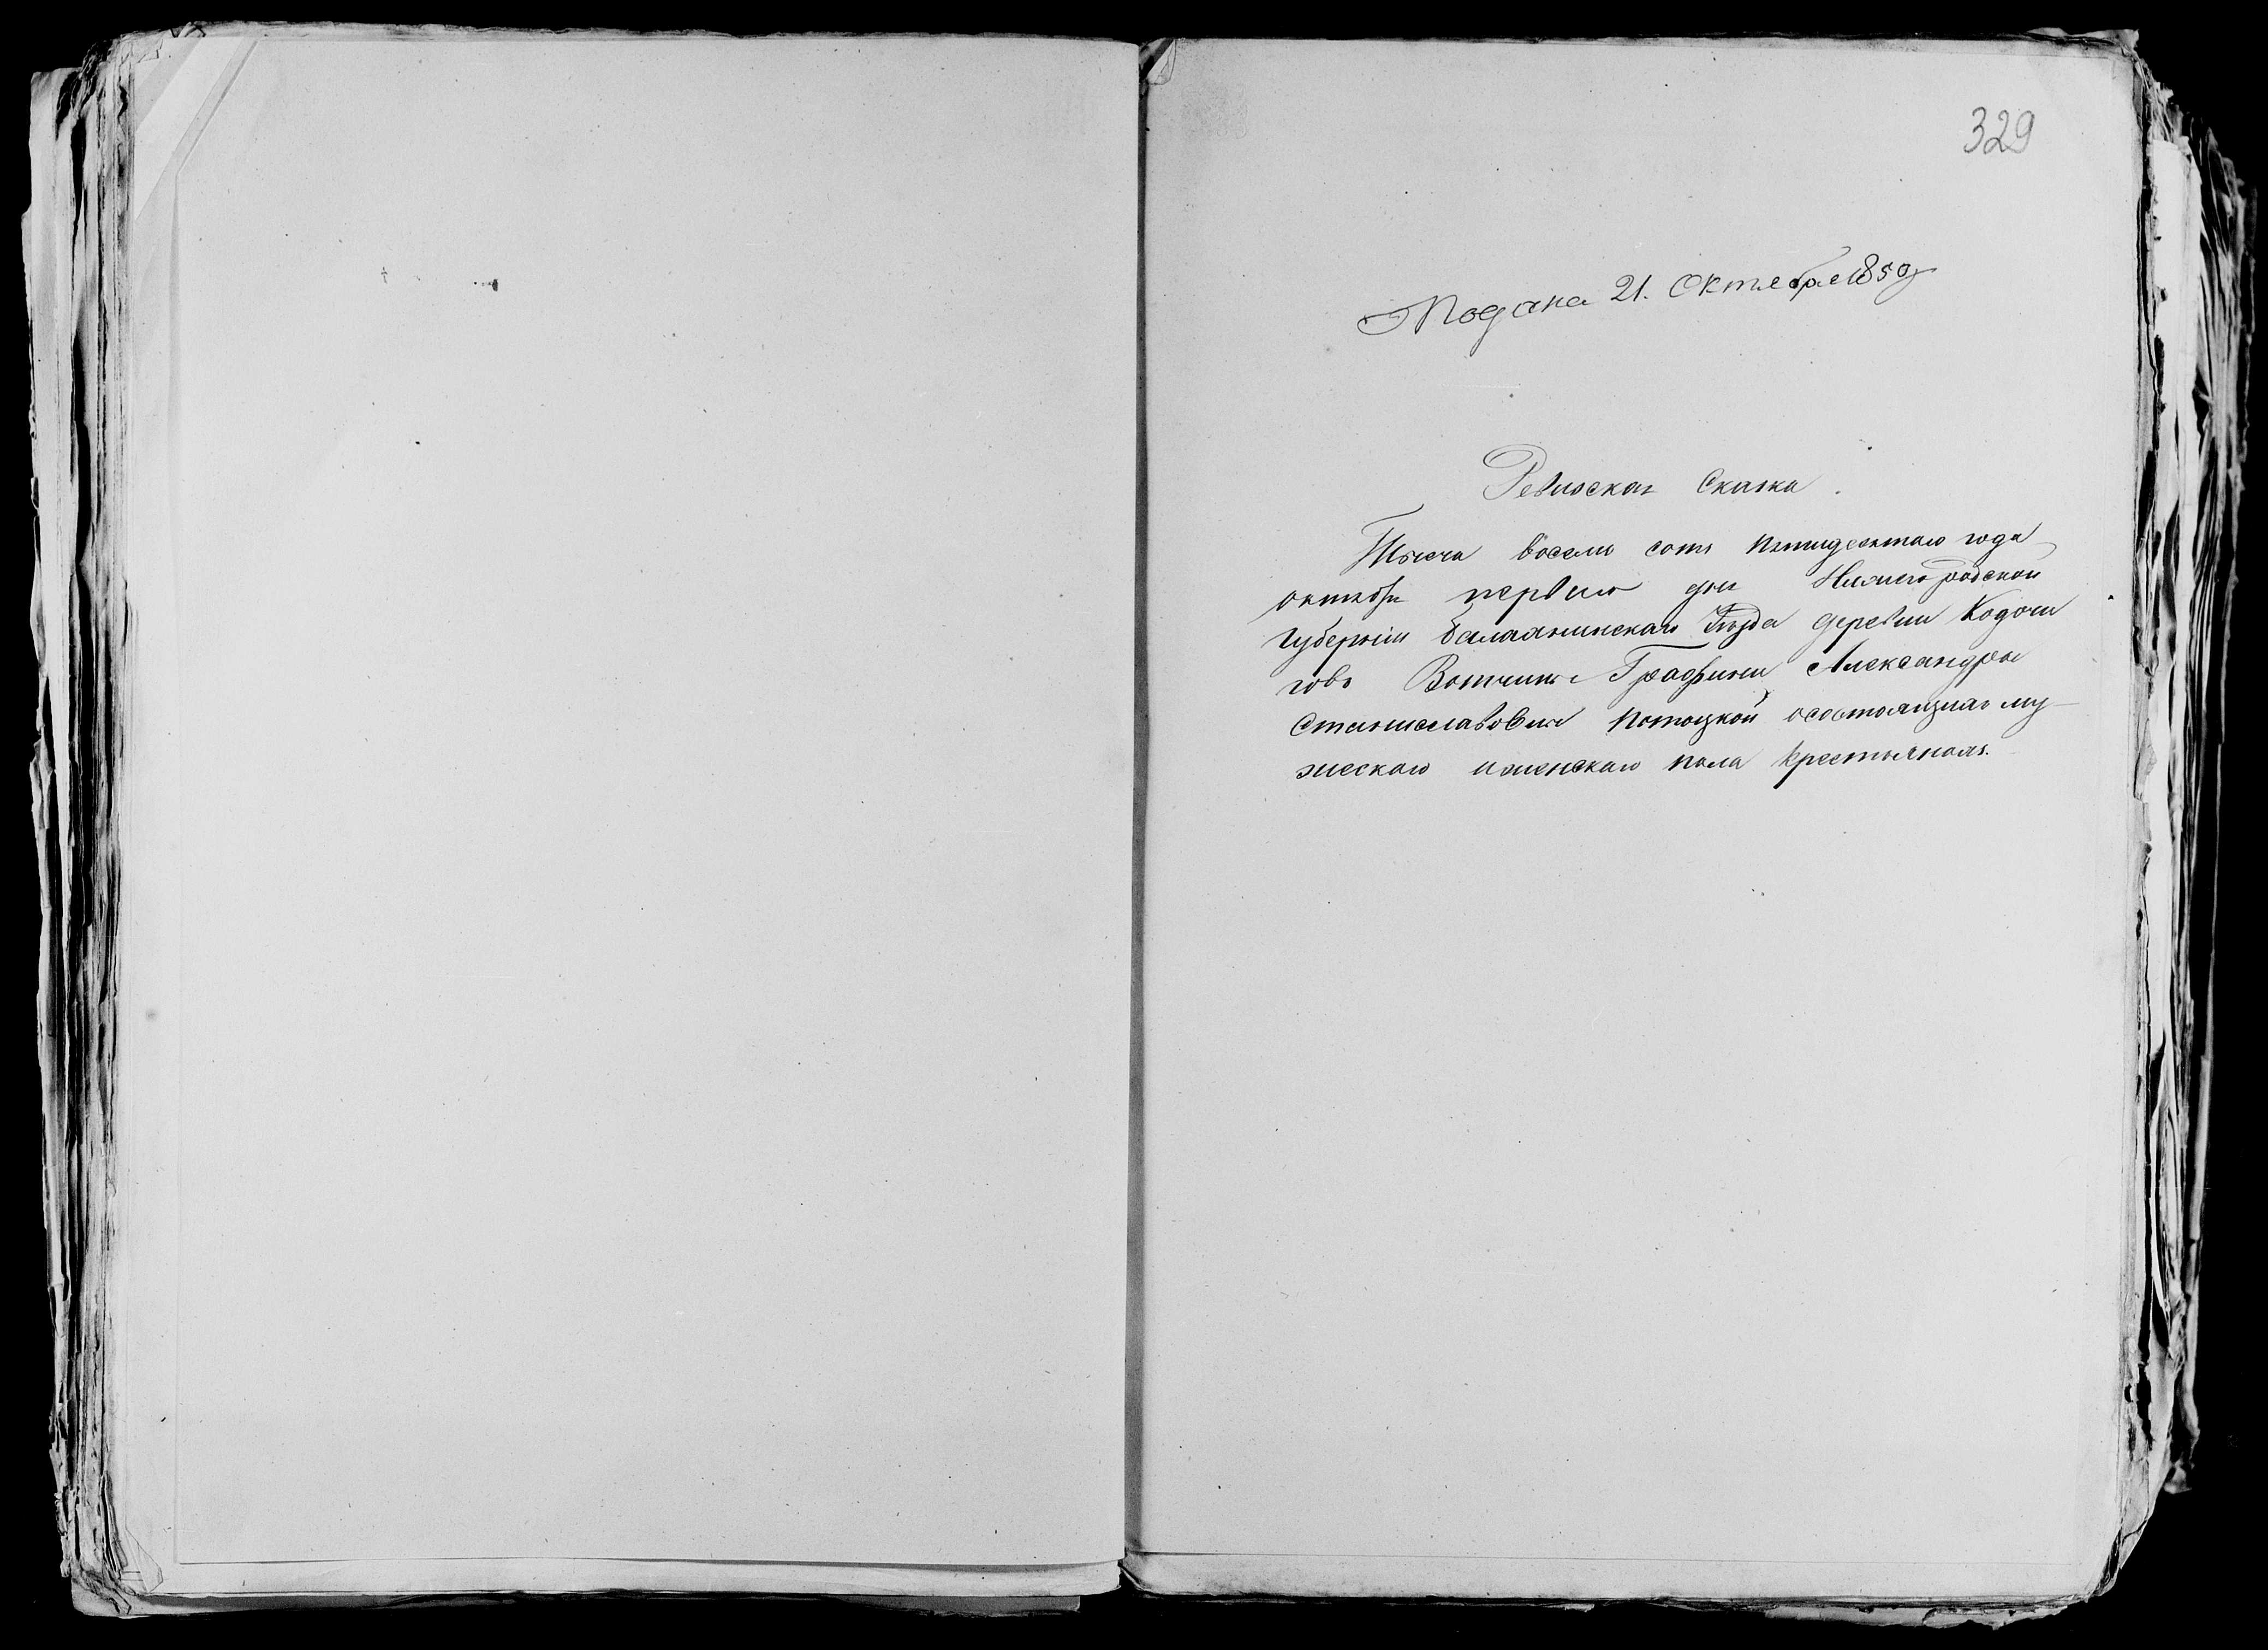 329
Подана 21. Октебре 1850г
Ревиская Сказка.
Тысеча Восемь сотъ пятидесятаго года
октября перваго дня Нижегородской
Губерніи Балахнинскаго Уѣзда деревни Кадочи
говъ Вотчины Графини Александры
Станиславовны Потоцкой осостоящихъ му-
жескаго иженскаго пола крестьянахъ.